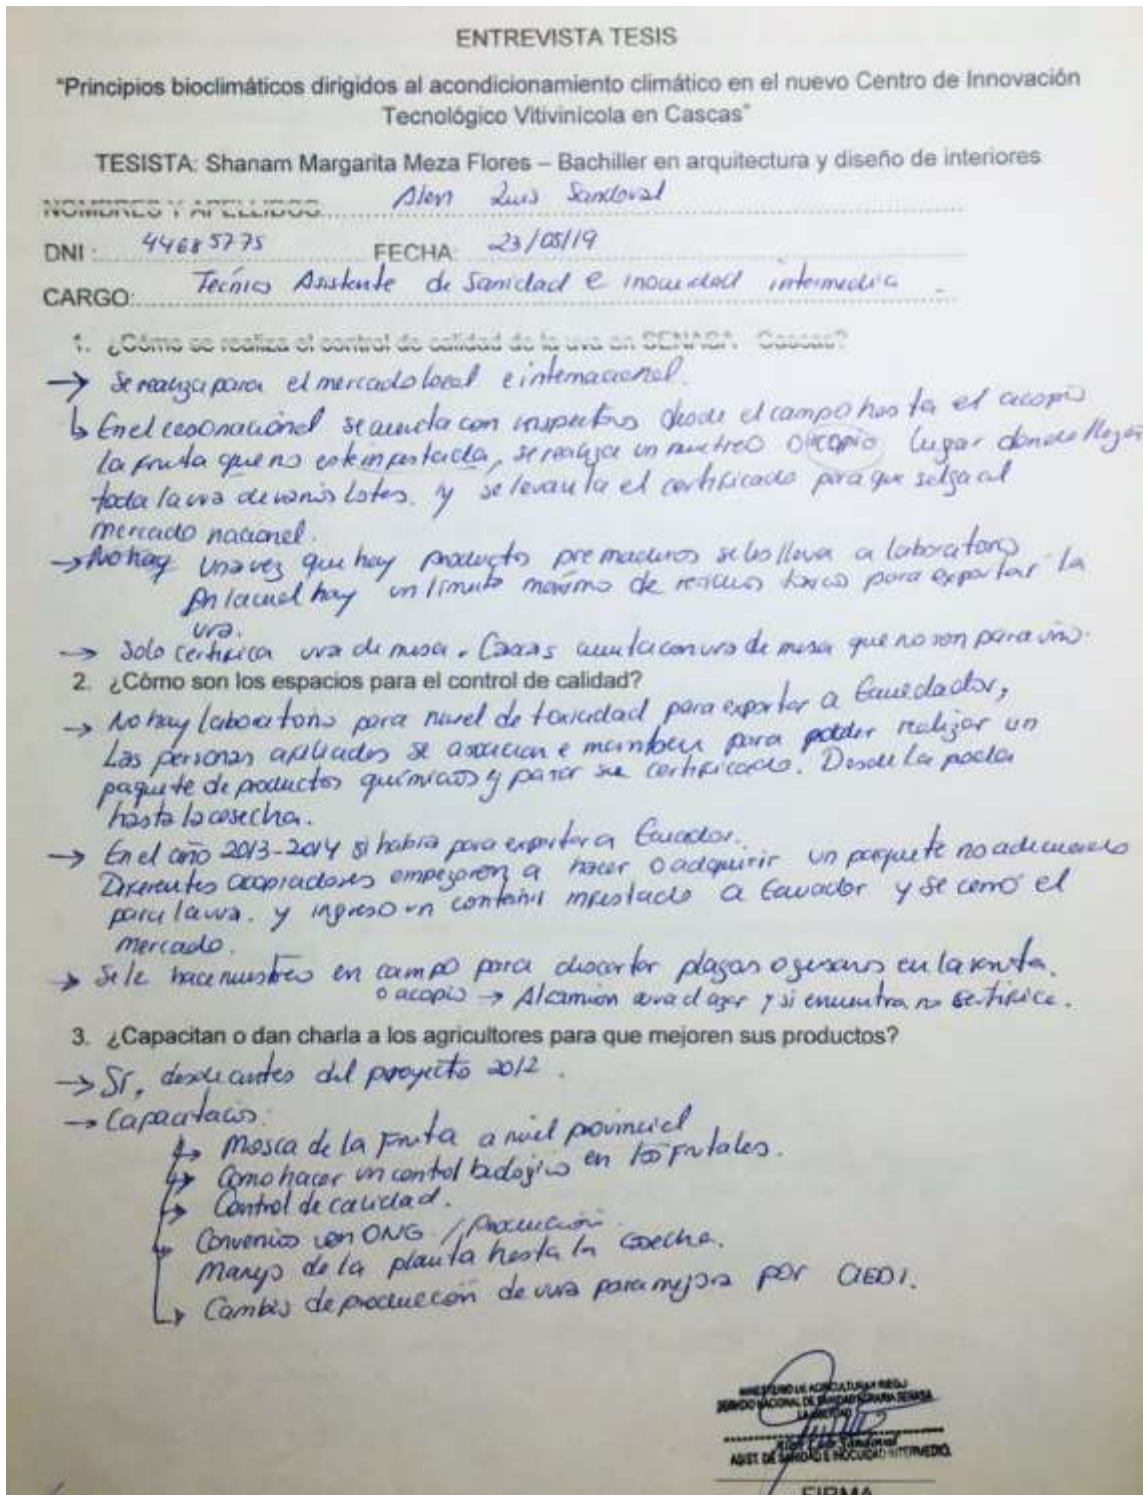 ENTREVISTA TESIS
"Principios bioclimáticos dirigidos al acondicionamiento climático en el nuevo Centro de Innovación
Tecnológico Vitivinícola en Cascas"
TESISTA: Shanam Margarita Meza Flores – Bachiller en arquitectura y diseño de interiores
NOMBRES Y APELLIDOS: Alen Luis Sandoval
DNI: 44685775 FECHA: 23/05/19
CARGO: Tecnico Asistente de Sanidad e inocuidad intermedia
1. ¿Cómo se realiza el control de calidad de la uva en SENASA - Cascas?
→ Se realiza para el mercado local e internacional.
↳ En el caso nacional se cuenta con inspectores desde el campo hasta el acopio
la fruta que no este infestada, se realiza un muestreo o acopio lugar donde llegan
toda la uva de varios lotes. y se levanta el certificado para que salga al
mercado nacional.
→ No hay una vez que hay productos pre maduros se los lleva a laboratorio
en la cual hay un limite maximo de toxico para exportar la
uva.
→ Solo certifica uva de mesa. Cascas cuenta con uva de mesa que no son para vino.
2. ¿Cómo son los espacios para el control de calidad?
→ No hay laboratorio para nivel de toxicidad para exportar a
Las personas se asocian e para poder realizar un
paquete de productos químicos y pasar su certificado. Desde la poda
hasta la cosecha.
→ En el año 2013-2014 si habia para exportar a Ecuador.
Diferentes acopiadores empezaron a hacer o adquirir un paquete no adecuado
para la uva. y ingreso un infestado a Ecuador y se cerró el
mercado.
→ Se le hace muestreo en campo para descartar plagas o gusanos en la fruta.
o acopio → Al camión y si encuentra no certifica.
3. ¿Capacitan o dan charla a los agricultores para que mejoren sus productos?
→ Sí, desde antes del proyecto 2012.
→ Capacitacio:
↳ Mosca de la Fruta a nivel provincial
↳ Como hacer un control biologico en los Frutales.
↳ Control de calidad.
↳ Convenios con ONG / Producción
Manejo de la planta hasta la cosecha.
↳ Cambio de producción de uva para mejora por
MINISTERIO DE AGRICULTURA Y RIEGO
SERVICIO NACIONAL DE SANIDAD AGRARIA SENASA
LA LIBERTAD
Luis Sandoval
ASIST. DE SANIDAD E INOCUIDAD INTERMEDIO
FIRMA